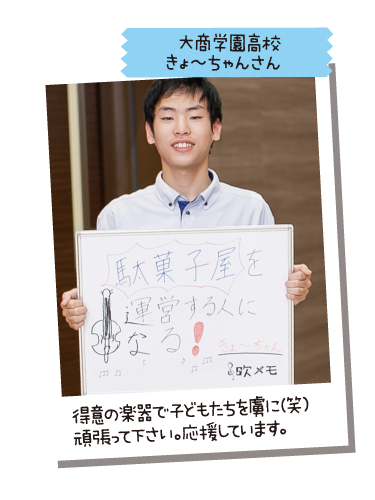 大商学園高校
きょ～ちゃんさん
駄菓子屋を
運営する人に
なる!
きょ～ちゃん
吹メモ
得意の楽器で子どもたちを虜に(笑)
頑張って下さい。応援しています。